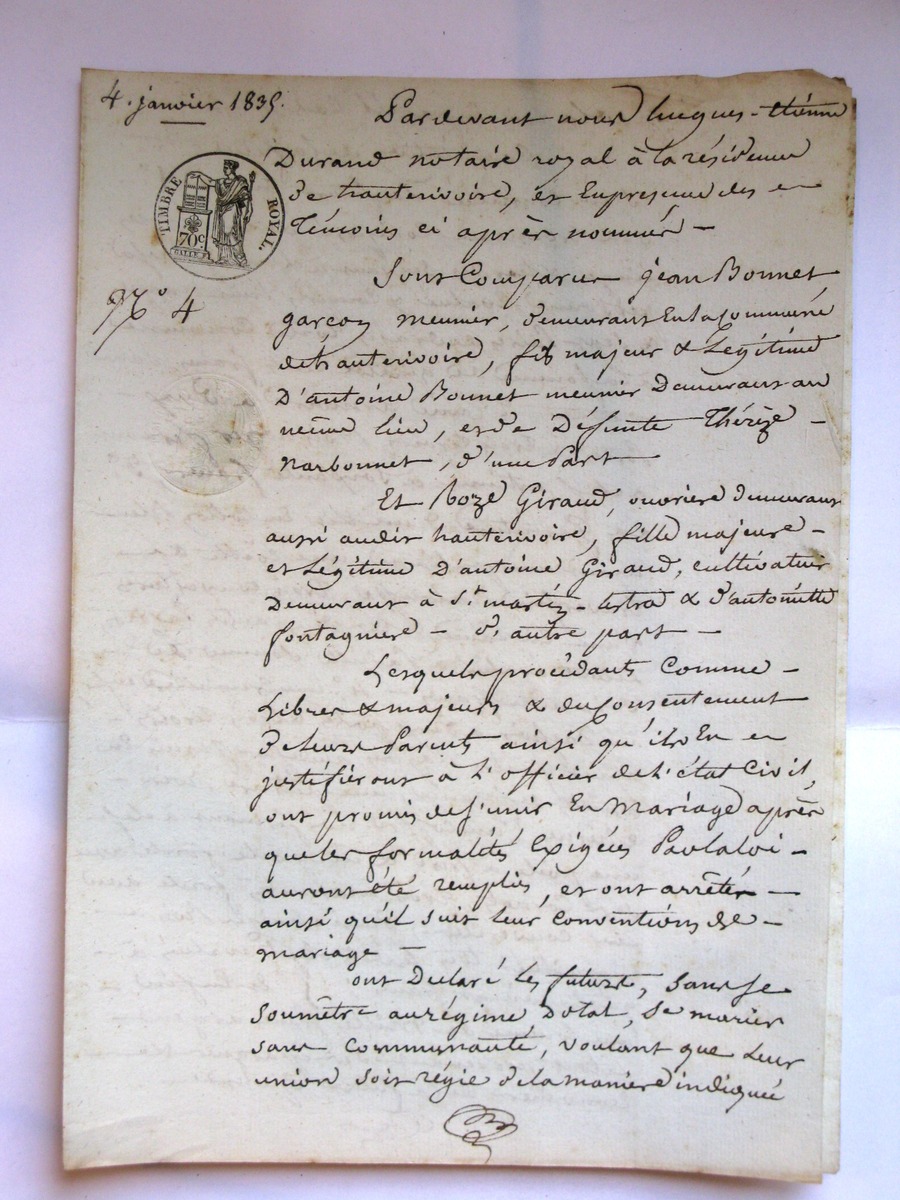 4. janvier 1835.
Pardevant nous hugues-étienne
Durand notaire royal à la résidence
de hauterivoire, et En presence des
Témoins ci après nommés —
TIMBRE ROYAL.
70c
N° 4
Sont Comparus jean Bonnet
garçon meunier, demeurant En la Commune
de hauterivoire, fils majeur & Légitime
D'antoine Bonnet meunier Demeurant au
même lieu, et de Défunte Thérèze —
Narbonnet, d'une Part —
Et Roze Giraud, ouvriere demeurant
aussi audit hauterivoire, fille majeure —
et Légitime D'antoine Giraud, cultivateur
Demeurant à St martin-lestra & d'antoinette
fontagniere — d'autre part —
Lesquels procédants Comme —
Libres & majeurs & du Consentement
de leurs Parents ainsi qu'ils En
justifieront à L'officier de L'état Civil,
ont promis de s'unir En Mariage après
que les formalités Exigées Par la loi —
auront été remplies, et ont arrêtés —
ainsi qu'il suit leur conventions de —
mariage —
ont Declaré les futurs, sans se
soumêtre au régime Dotal, se marier
sans Communauté, voulant que Leur
union soit régie de la maniere indiquée